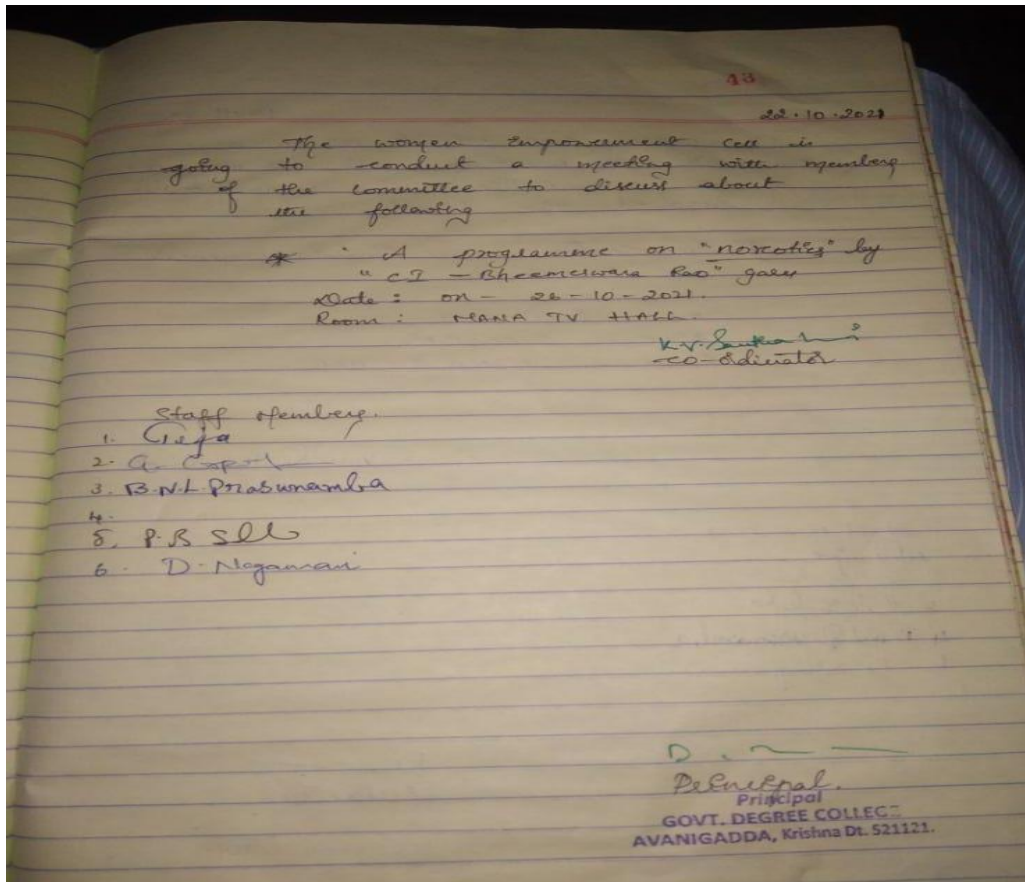 43
22.10.2021
The women Empowerment Cell is
going to conduct a meeting with members
of the committee to discuss about
the following
* A programme on "norcotics" by
"CI - Bheemeswara Rao" garu
Date : on - 26-10-2021.
Room : MANA TV HALL.
K.V.
co-ordinator
Staff Members.
1.
2. G.
3. B.N.L. Prasunamba
4.
5. P.B
6. D. Nagamani
D.
Principal.
Principal
GOVT. DEGREE COLLEGE
AVANIGADDA, Krishna Dt. 521121.